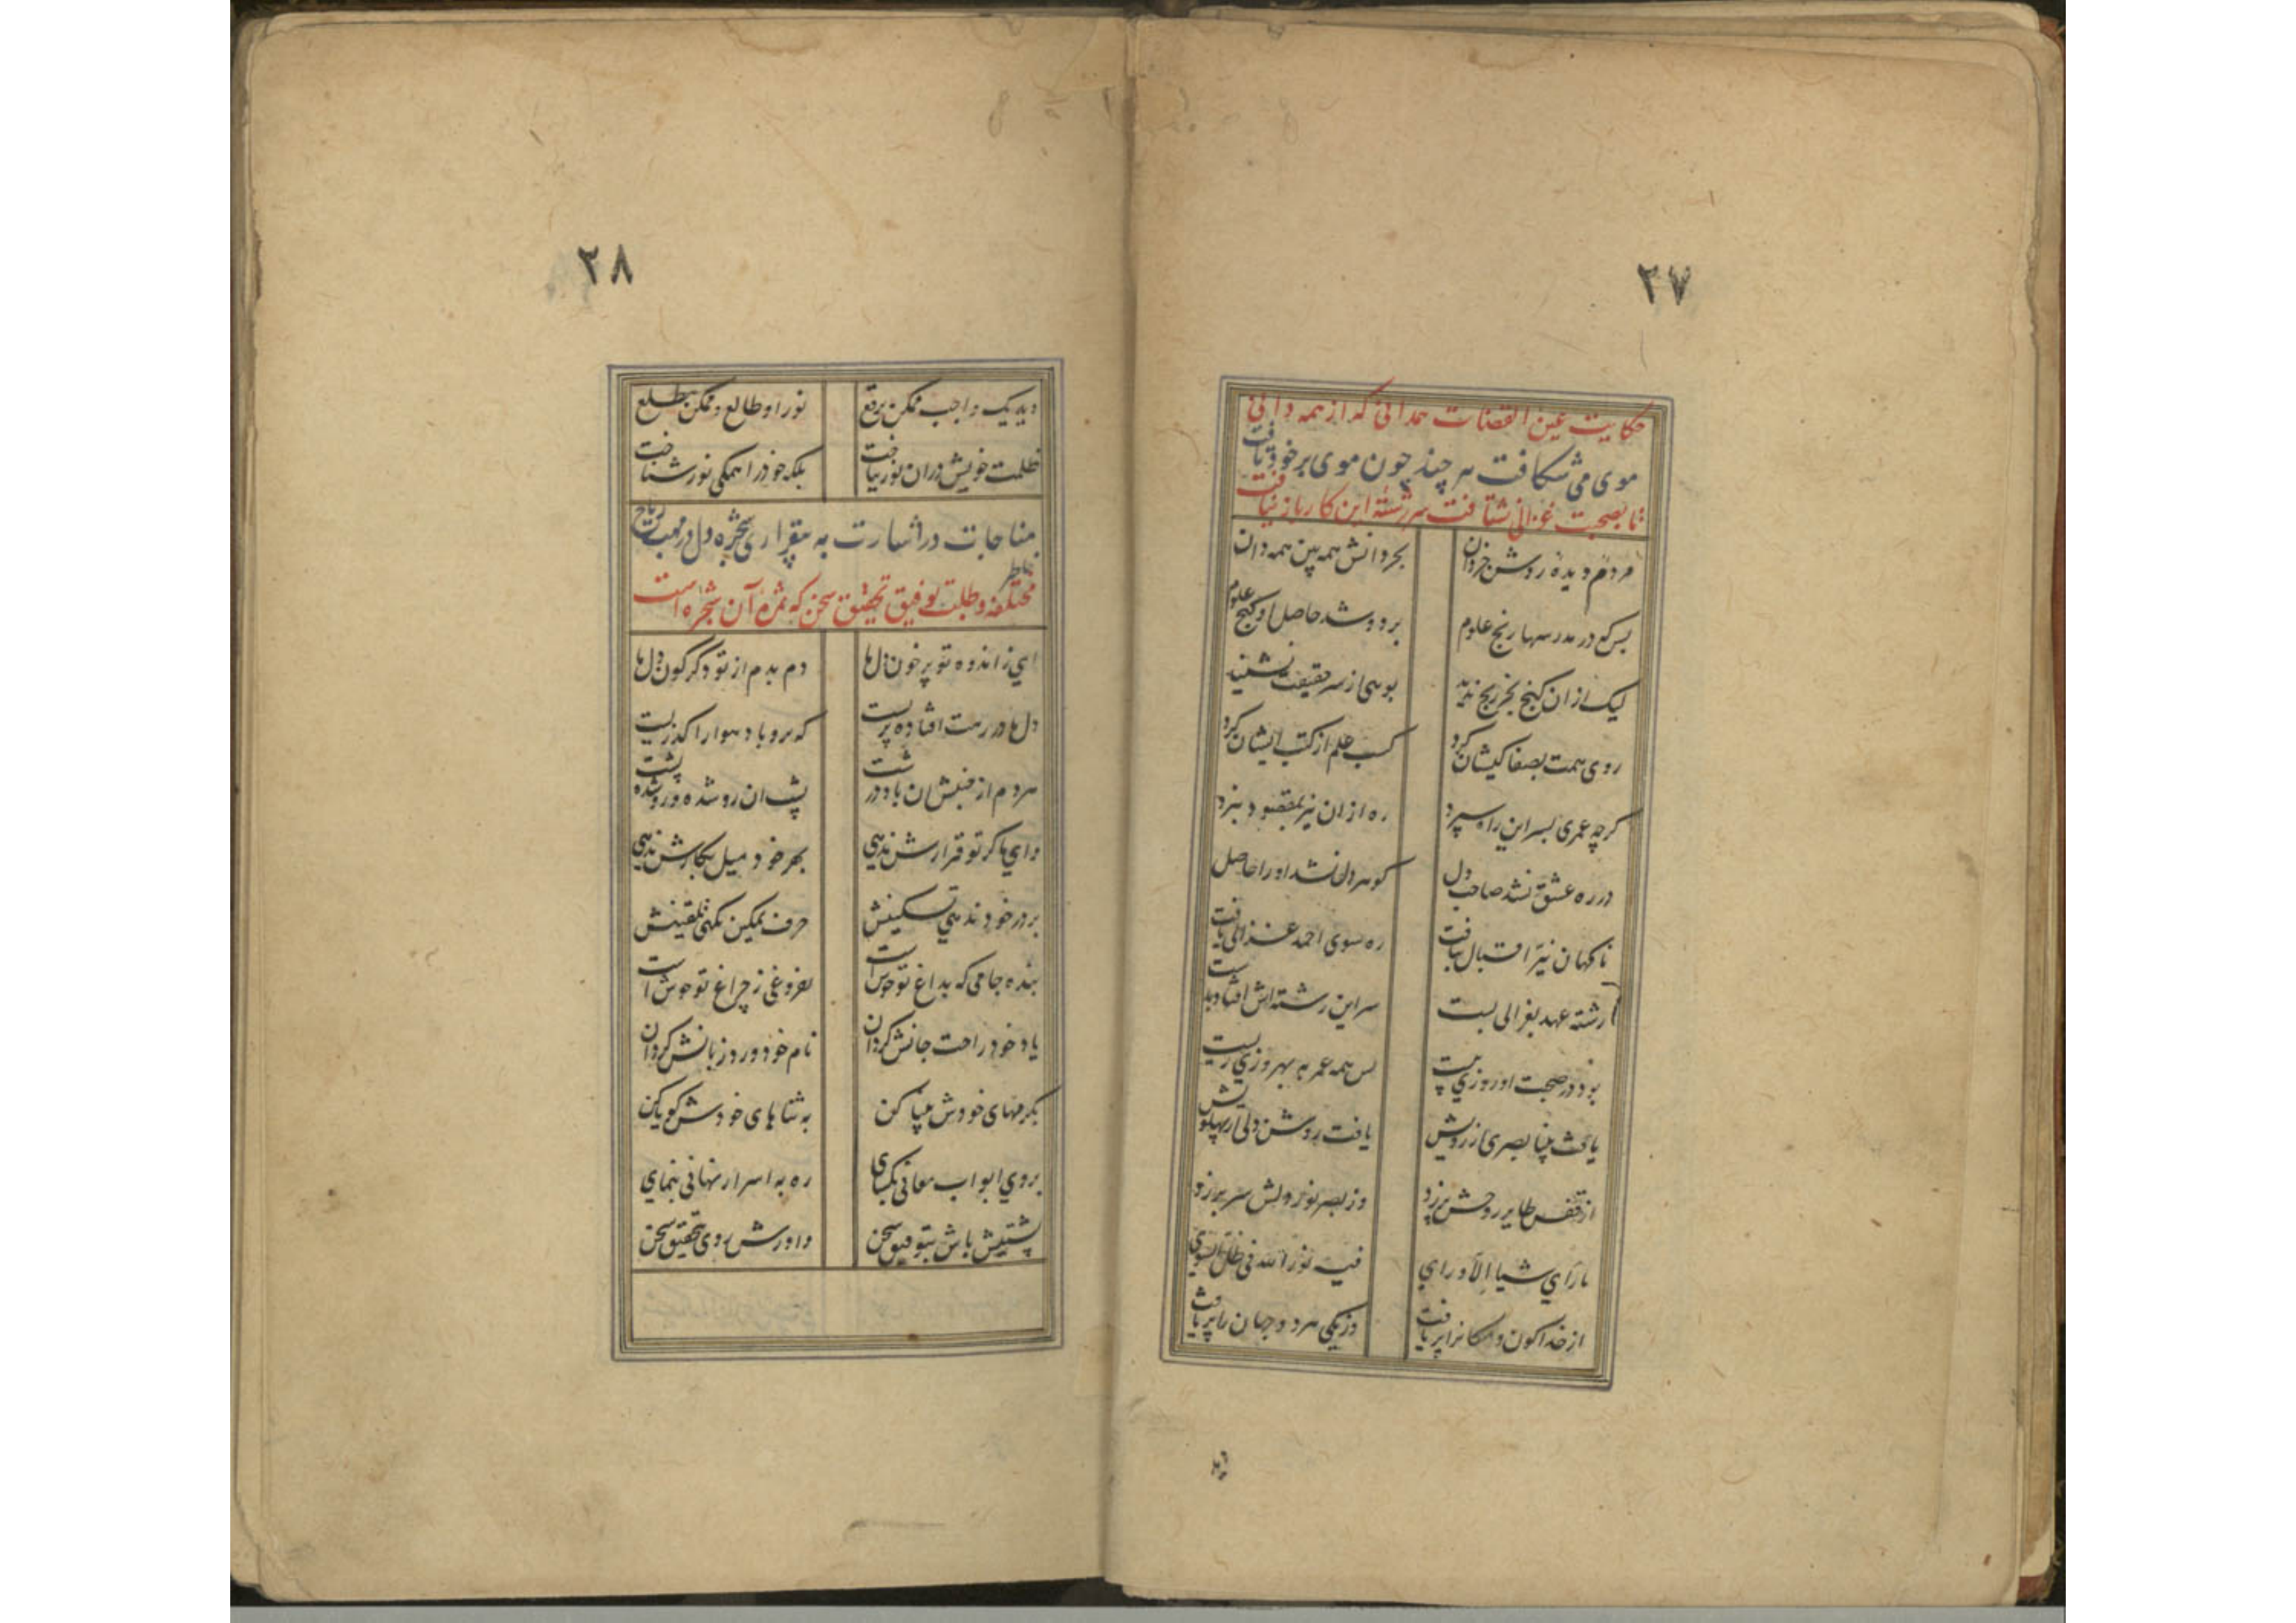 ۲۷
حکایت عین القضات همدانی که از همه دانی
موی می شکافت هر چند چون موی بر خود تافت
تا بصحبت غزالی نشتافت سررشته این کار باز نیافت
مردم دیده روشن خردان
بحر دانش همه بین همه دان
بس که در مدرسها رنج علوم
برد و شد حاصل او گنج علوم
لیک از ان گنج بجز رنج ندید
بویی از سر حقیقت نشنید
روی همت بصفا کیشان کرد
کسب علم از کتب ایشان کرد
گرچه عمری بسر این راه سپرد
ره از ان نیز بمقصود نبرد
در ره عشق نشد صاحب دل
گوهر دل نشد او را حاصل
ناگهان نیر اقبال بتافت
ره سوی احمد غزالی یافت
رشته عهد بغزالی بست
سر این رشته اش افتاد بدست
بود در صحبت او روزی بیست
بس همه عمر به بهروزی زیست
یافت بینا بصری از رویش
یافت روشن دلی از پهلویش
از قفس طایر روحش پر زد
وز بصر نور دلش سر بر زد
ما رآی شیأ الا و رای
فیه نور الله فی ظل السوی
از خدا کون و مکان را پر یافت
وز یکی هر دو جهان را پر یافت
۲۸
دید یک واجب و ممکن برقع
نور او طالع و ممکن مطلع
ظلمت خویش دران نور بباخت
بلکه خود را همگی نور شناخت
مناجات در اشارت به بیقراری شجره دل در مهب ریاح
خاطر
مختلفه و طلب توفیق تحقیق سخن که ثمره آن شجره است
ای ز اندوه تو پر خون دل ها
دم بدم از تو دگرگون دل ها
دل ها در رهت افتاده پریست
که برو باد هوا را گذریست
هر دم از جنبش ان باد درشت
پشت ان رو شده و رو شده پشت
وای ها گر تو قرارش ندهی
بهر خود میل بکارش ندهی
بر در خود ندهی تسکینش
حرف تمکین نکنی تلقینش
بنده جامی که بداغ تو خوش است
بفروغی ز چراغ تو خوش است
یاد خود راحت جانش گردان
نام خود ورد زبانش گردان
بکرمهای خودش بینا کن
به ثناهای خودش گویا کن
بر وی ابواب معانی بگشای
ره به اسرار نهانی بنمای
پشتیش باش بتوفیق سخن
واورش روی بتحقیق سخن